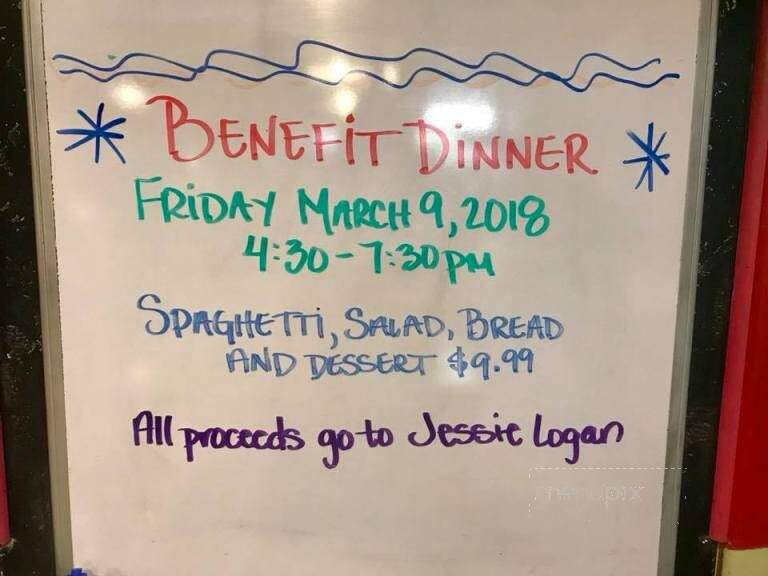 BENEFIT DINNER
FRIDAY MARCH 9, 2018
4:30-7:30PM
SPAGHETTI, SALAD, BREAD
AND DESSERT $9.99
All proceeds go to Jessie Logan